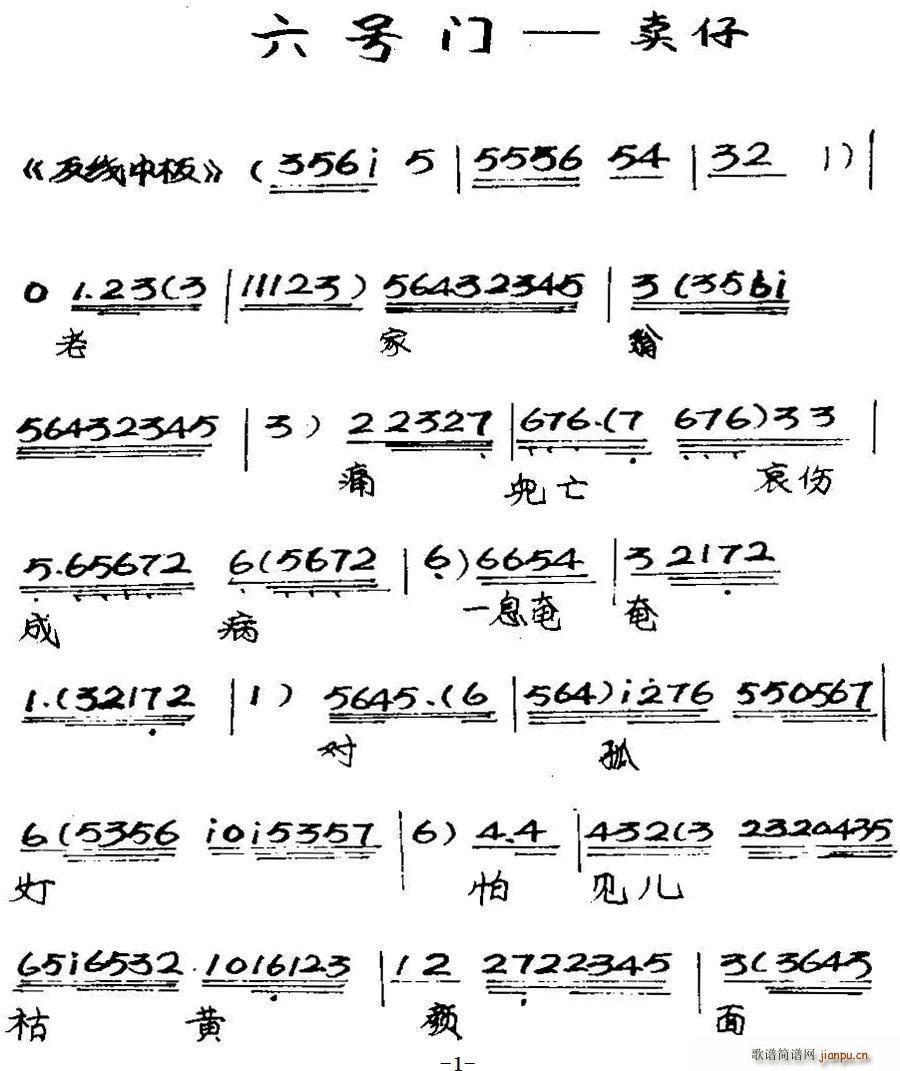 六号门——卖仔
《反线中板》 (3561 5 | 5556 54 | 32 1) |
0 1.23(3 | 111123) 56432345 | 3 (3561
老 家 翁
56432345 | 3) 2 2327 | 676.(7 676)33 |
痛 儿亡 哀伤
5.65672 6(5672 | 6)6654 | 3 2172
成 病 一息奄 奄
1.(32172 | 1) 5645.(6 | 564)i276 550567 |
对 孤
6(5356 i0i5357 | 6) 4.4 | 432(3 2320435
灯 怕 见儿
65i6532 1016123 | 12 2722345 | 3(3643
枯 黄 颜 面
-1-
歌谱简谱网 jianpu.cn